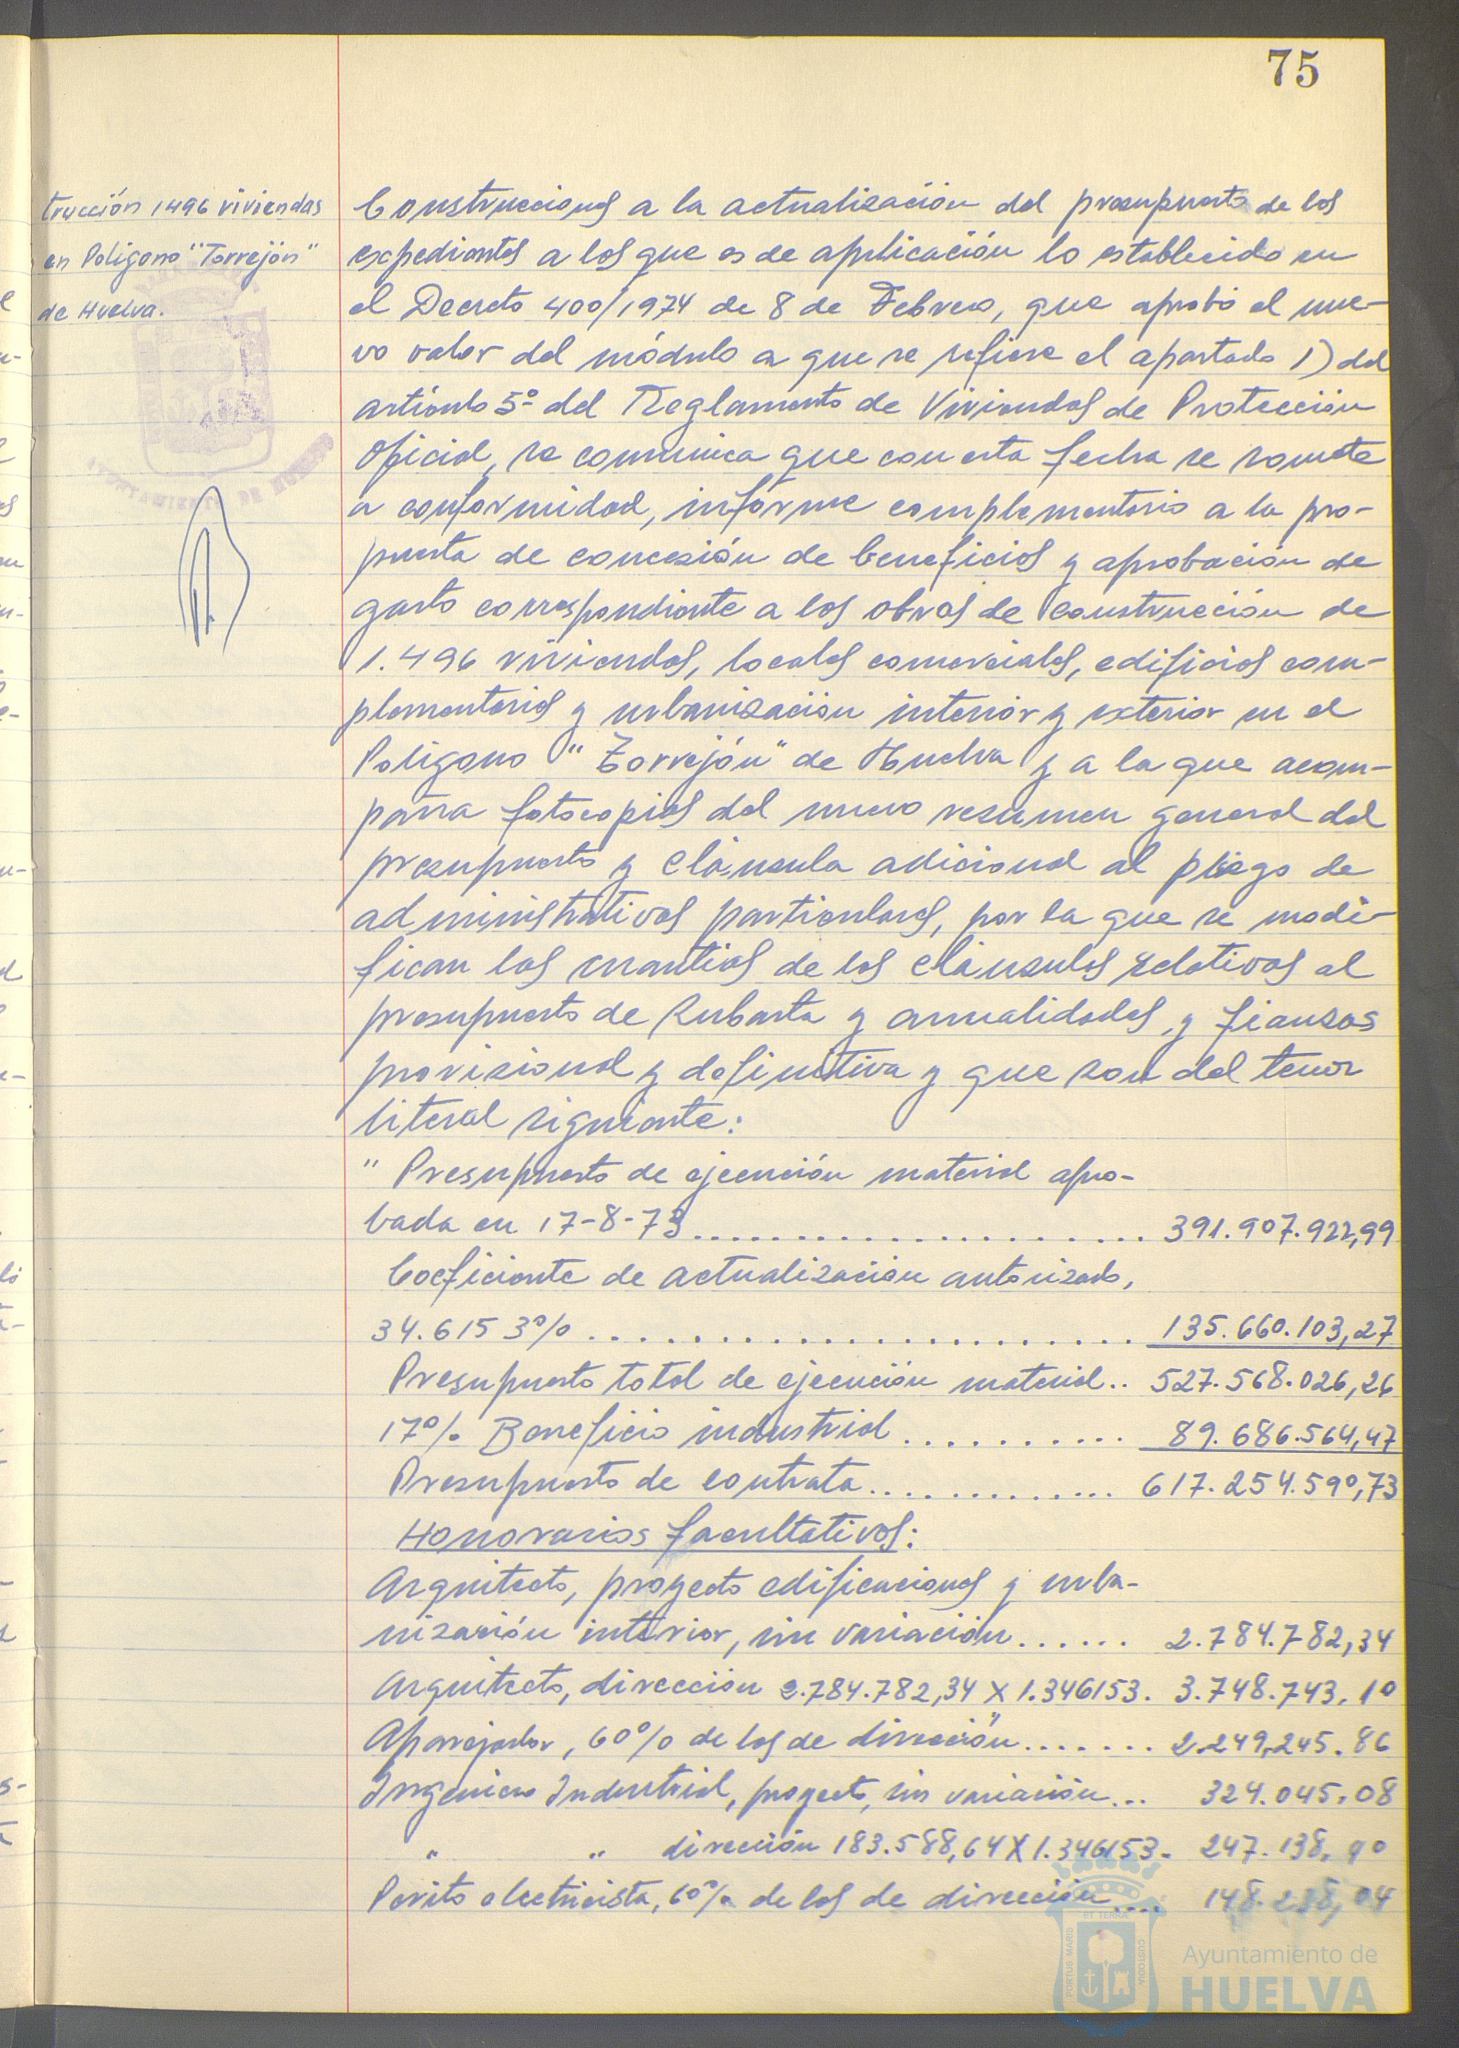 75
trucción 1496 viviendas
en Polígono "Torrejón"
de Huelva.
AYUNTAMIENTO DE HUELVA
Construcciones a la actualización del presupuesto de los
expedientes a los que es de aplicación lo establecido en
el Decreto 400/1974 de 8 de Febrero, que aprobó el nue-
vo valor del módulo a que se refiere el apartado 1) del
artículo 5º del Reglamento de Viviendas de Protección
Oficial, se comunica que con esta fecha se somete
a conformidad, informe complementario a la pro-
puesta de concesión de beneficios y aprobación de
gasto correspondiente a las obras de construcción de
1.496 viviendas, locales comerciales, edificios com-
plementarios y urbanización interior y exterior en el
Polígono "Torrejón" de Huelva y a la que acom-
paña fotocopias del nuevo resumen general del
presupuesto y cláusula adicional al pliego de
administrativas particulares, por la que se modi-
fican las cuantías de las cláusulas relativas al
presupuesto de subasta y anualidades, y fianzas
provisional y definitiva y que son del tenor
literal siguiente:
" Presupuesto de ejecución material apro-
bada en 17-8-73..................... 391.907.922,99
Coeficiente de actualización autorizado,
34.615 3% ........................ 135.660.103,27
Presupuesto total de ejecución material.. 527.568.026,26
17% Beneficio industrial .......... 89.686.564,47
Presupuesto de contrata............. 617.254.590,73
Honorarios facultativos:
Arquitecto, proyecto edificaciones y urba-
nización interior, sin variación...... 2.784.782,34
Arquitecto, dirección 2.784.782,34 X 1.346153. 3.748.743.10
Aparejador, 60% de los de dirección....... 2.249,245.86
Ingeniero Industrial, proyecto, sin variación... 324.045.08
" " dirección 183.588,64 X 1.346153. 247.138,90
Perito electricista, 60% de los de dirección.... 148.238,04
PORTUS MARIS ET TERRAE CUSTODIA
Ayuntamiento de
HUELVA